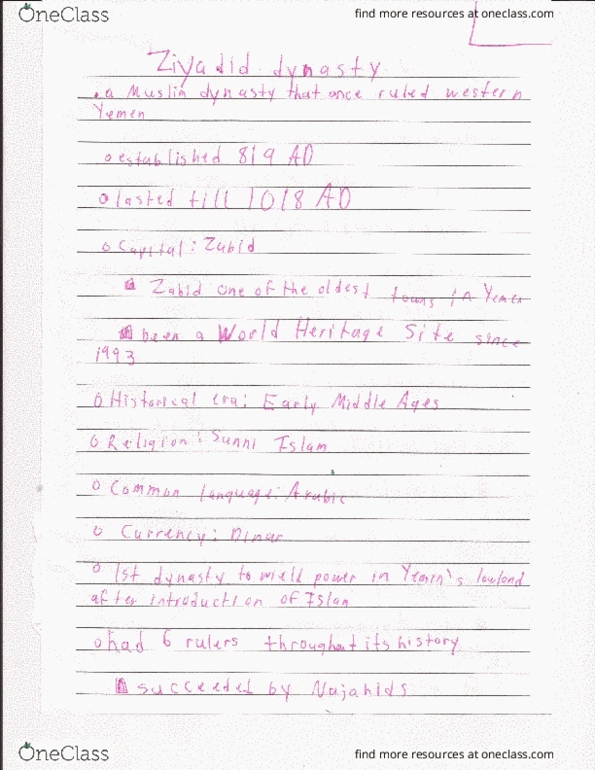 OneClass
find more resources at oneclass.com
Ziyadid dynasty
. a Muslim dynasty that once ruled western
Yemen
o established 819 AD
o lasted till 1018 AD
o Capital: Zabid
Zabid one of the oldest towns in Yemen
been a World Heritage Site since
1993
o Historical era: Early Middle Ages
o Religion: Sunni Islam
o Common language: Arabic
o Currency: Dinar
o 1st dynasty to wield power in Yemin's lowland
after introduction of Islam
o had 6 rulers throughout its history
succeeded by Najahids
OneClass
find more resources at oneclass.com